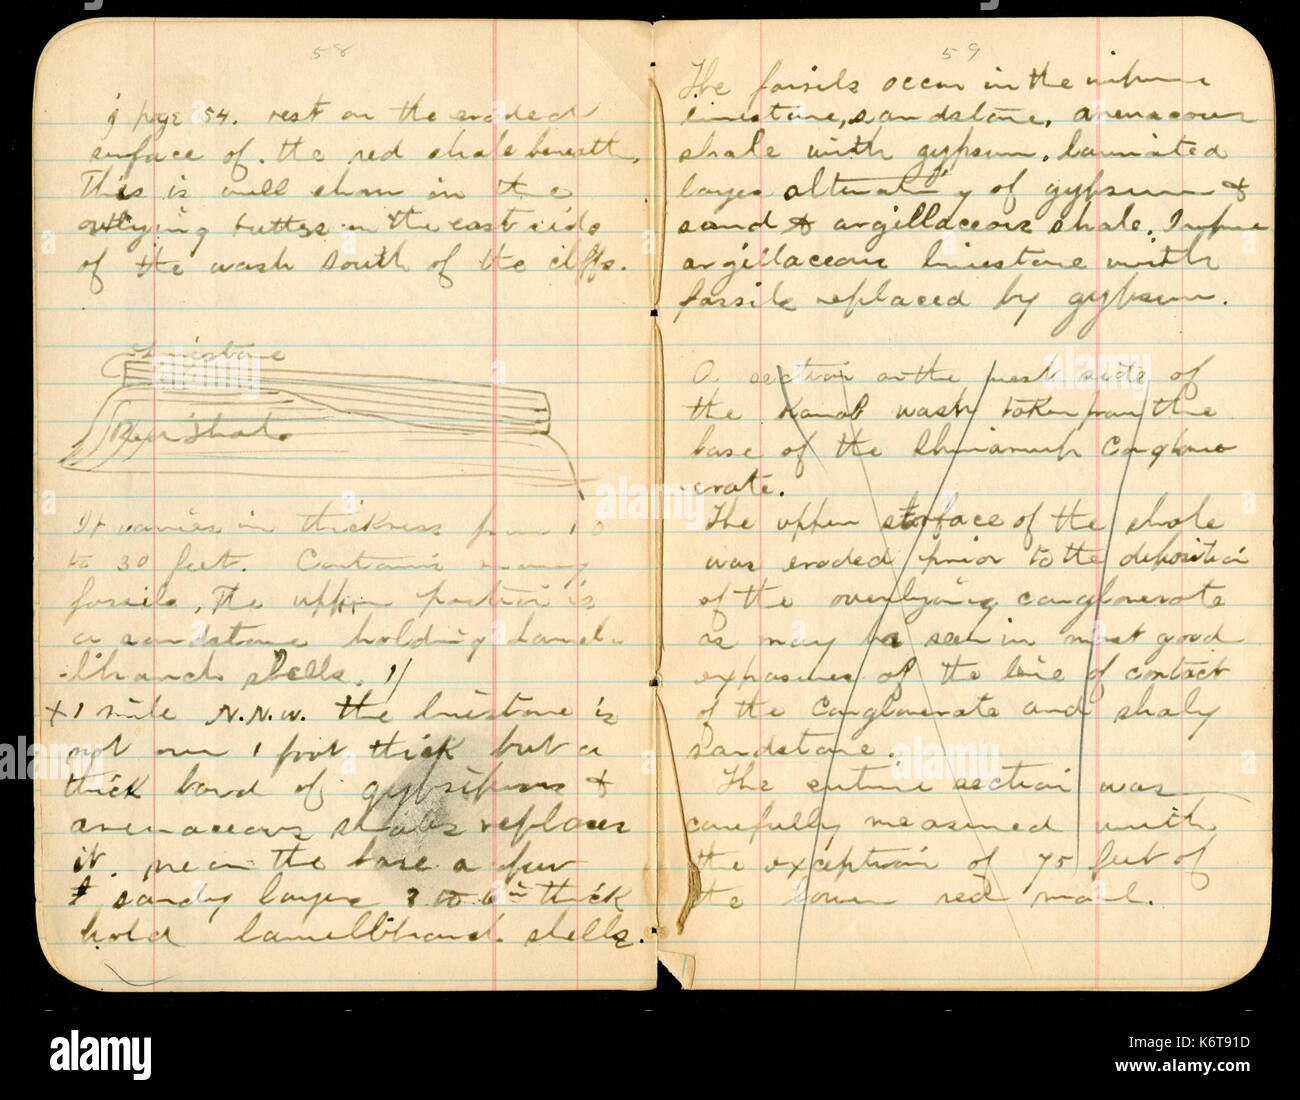 58
page 54. rest on the eroded
surface of the red shale beneath.
This is well shown in the
outlying buttes on the east side
of the wash south of the cliffs.
Limestone
Red Shale
It varies in thickness from 10
to 30 feet. Contains many
fossils, The upper portion is
a sandstone holding Lamel-
-libranch shells.
x 1 mile N.N.W. the limestone is
not over 1 foot thick but a
thick band of gypsum &
arenaceous shales replaces
it. near the base a few
sandy layers 3 to 6 in thick
hold Lamellibranch shells.
59
The fossils occur in the impure
limestone, sandstone, arenaceous
shale with gypsum, laminated
layers alternating of gypsum &
sand & argillaceous shale. Impure
argillaceous limestone with
fossils replaced by gypsum.
A section on the west side of
the Kanab wash taken from the
base of the Shinarump Conglom
-erate.
The upper surface of the shale
was eroded prior to the deposition
of the overlying conglomerate
as may be seen in most good
exposures of the line of contact
of the Conglomerate and shaly
sandstone.
The entire section was
carefully measured with
the exception of 75 feet of
the lower red marl.
alamy
Image ID: K6T91D
www.alamy.com